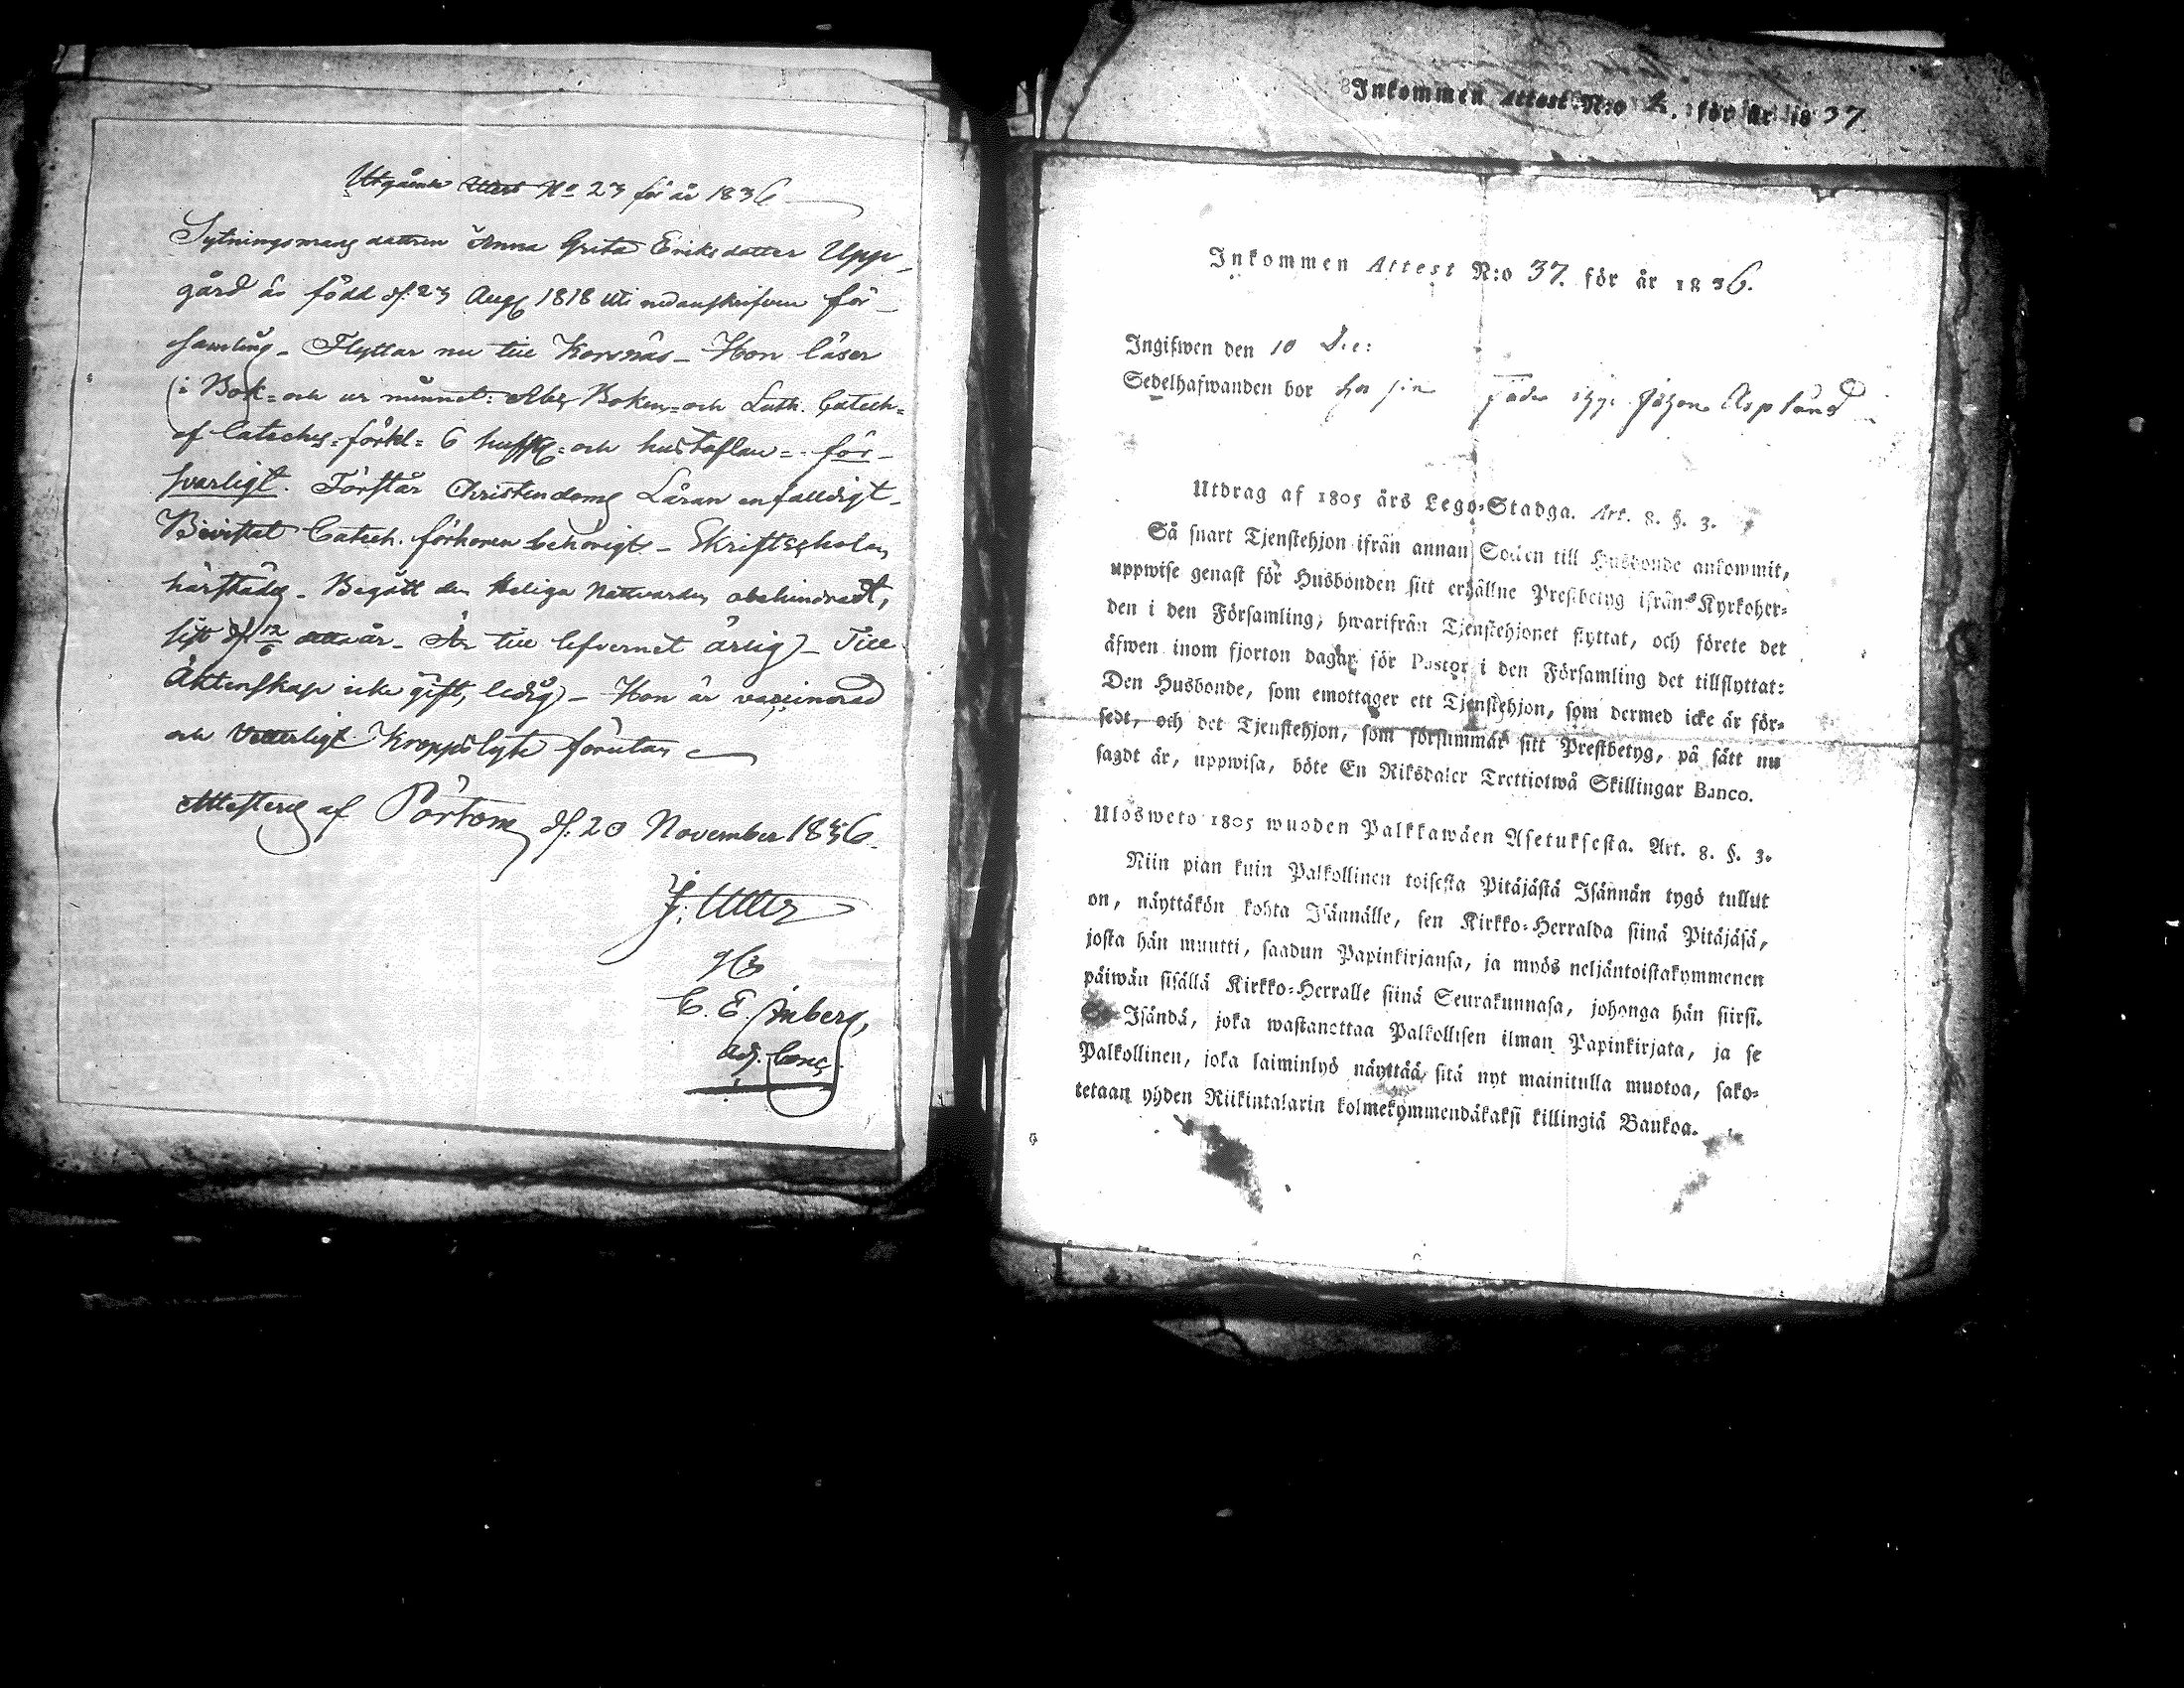 Utgående Attest No 23 för år 1836
Sytningsmans dottren Anna Greta Eriksdotter Upp-
gård är född d. 23 Aug 1818 uti nedanskrifven för-
samling - Flyttar nu till Korsnäs - Hon läser
i Bok - och ur minnet: Abc Boken - och Luth. Catech-
af Catechs - förkl = 6 hufst - och hustaflan = för-
svarligt. Förstår Christendoms Läran enfaldigt -
Bevistat Catech. förhören behörigt - Skriftscholan
härstädes - Begått den Heliga Nattvarden obehindradt,
sist d. 12/6 är - Är till lefvernet ärlig - Till
Äktenskap icke gift, ledig - Hon är vaccinerad
och Veterligt Kroppslyte förutan
Attesteras af Pörtom d. 20 November 1836
C. E.
adj.
Inkommen Attest N:o för år 1837
Inkommen Attest N:o 37. för år 1836.
Ingifwen den 10 Dec:
Sedelhafwanden bor hos sin Asplund
Utdrag af 1805 års Lego-Stadga. Art. 8. §. 3.
Så snart Tjenstehjon ifrån annan Socken till Husbonde ankommit,
uppwise genast för Husbonden sitt erhållne Prestbetyg ifrån Kyrkoher-
den i den Församling, hwarifrån Tjenstehjonet flyttat, och förete det
äfwen inom fjorton dagar för Pastor i den Församling det tillflyttat:
Den Husbonde, som emottager ett Tjenstehjon, som dermed icke är för-
sedt, och det Tjenstehjon, som försummar sitt Prestbetyg, på sätt nu
sagdt är, uppwisa, böte En Riksdaler Trettiotwå Skillingar Banco.
Ulosweto 1805 wuoden Palkkawäen Asetuksesta. Art. 8. §. 3.
Niin pian kuin Palkollinen toisesta Pitäjästä Isännän tygö tullut
on, näyttäkön kohta Isännälle, sen Kirkko-Herralda siinä Pitäjäsä,
josta hän muutti, saadun Papinkirjansa, ja myös neljäntoistakymmenen
päiwän sisällä Kirkko-Herralle siinä Seurakunnasa, johonga hän siirsi.
Isändä, joka wastanottaa Palkollisen ilman Papinkirjata, ja se
Palkollinen, joka laiminlyö näyttää sitä nyt mainitulla muotoa, sako-
tetaan yhden Riikintalarin kolmekymmendäkaksi killingiä Bankoa.